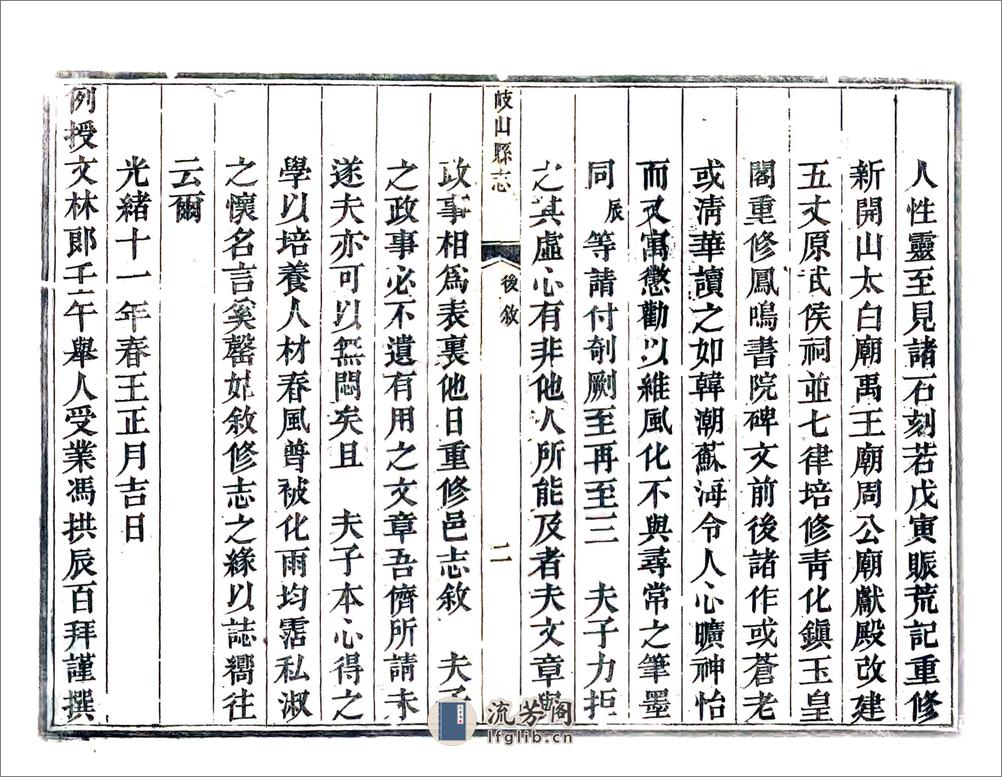 人性靈至見諸石刻若戊寅賑荒記重修
新開山太白廟禹王廟周公廟獻殿改建
五丈原武侯祠並七律培修青化鎮玉皇
閣重修鳳鳴書院碑文前後諸作或蒼老
或淸華讀之如韓潮蘇海令人心曠神怡
而又寓懲勸以維風化不與尋常之筆墨
同辰等請付剞劂至再至三 夫子力拒
之其虛心有非他人所能及者夫文章與
岐山縣志 後敘 二
政事相爲表裏他日重修邑志敘 夫子
之政事必不遺有用之文章吾儕所請未
遂夫亦可以無悶矣且 夫子本心得之
學以培養人材春風普被化雨均霑私淑
之懷名言奚罄姑敘修志之緣以誌嚮往
云爾
光緒十一年春王正月吉日
例授文林郎壬午舉人受業馮拱辰百拜謹撰
流芳閣
lfglib.cn